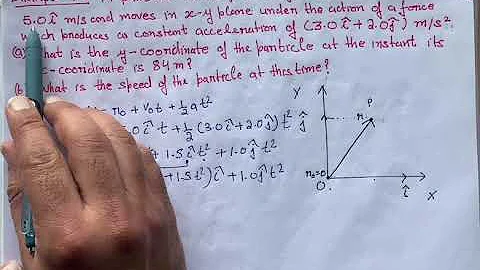 5.0î m/s and moves in x-y plane under the action of a force
which produces a constant acceleration of (3.0î+2.0ĵ) m/s²
(a) What is the y-coordinate of the particle at the instant its
x-coordinate is 84 m?
(b) What is the speed of the particle at this time?
= r₀ + v₀t + ½at²
.0î t + ½ (3.0î+2.0ĵ) t²
+ 1.5î t² + 1.0ĵ t²
+ 1.5t²)î + 1.0ĵ t²
Y
ĵ
P
r
r₀=0
O
î
X